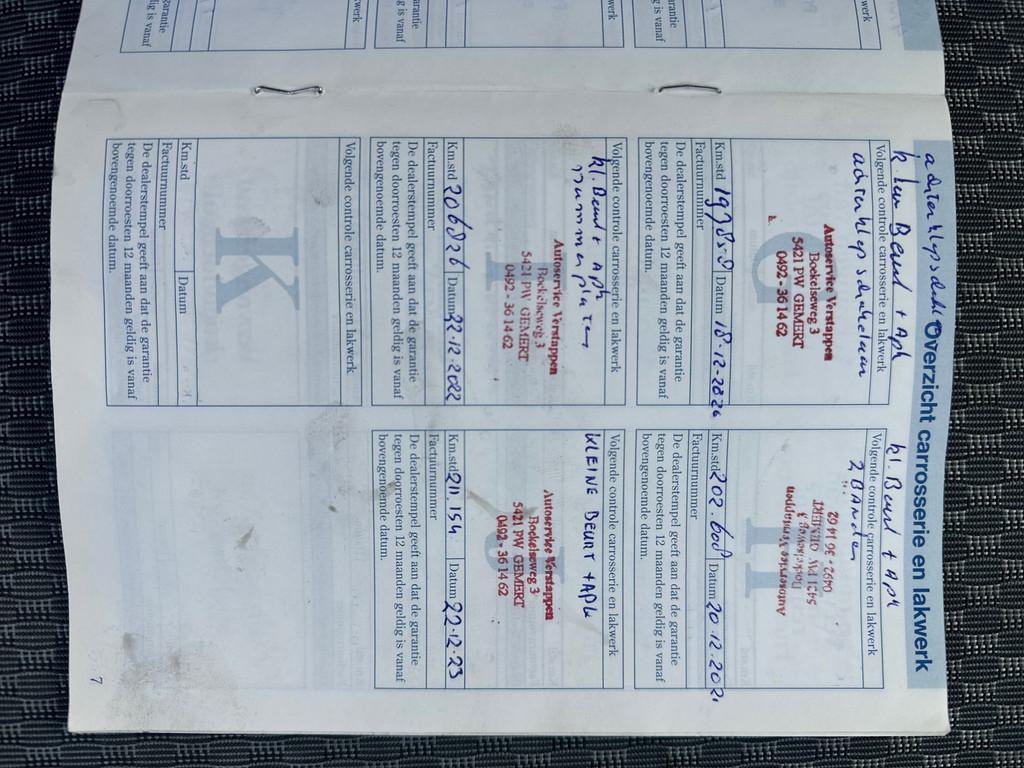 Overzicht carrosserie en lakwerk
achterklepschakelaar
Volgende controle carrosserie en lakwerk
Autoservice Verstappen
Boekelseweg 3
5421 PW GEMERT
0492 - 36 14 62
G
Km.std Datum 18-12-2020
Factuurnummer
De dealerstempel geeft aan dat de garantie
tegen doorroesten 12 maanden geldig is vanaf
bovengenoemde datum.
kl. Beurt + Apk
Volgende controle carrosserie en lakwerk
2 BANden
Autoservice Verstappen
Boekelseweg 3
5421 PW GEMERT
0492 - 36 14 62
H
Km.std 202.608 Datum 20-12-2021
Factuurnummer
De dealerstempel geeft aan dat de garantie
tegen doorroesten 12 maanden geldig is vanaf
bovengenoemde datum.
Volgende controle carrosserie en lakwerk
kl. Beurt + Apk
nummerplaten
Autoservice Verstappen
Boekelseweg 3
5421 PW GEMERT
0492 - 36 14 62
I
Km.std 206826 Datum 22-12-2022
Factuurnummer
De dealerstempel geeft aan dat de garantie
tegen doorroesten 12 maanden geldig is vanaf
bovengenoemde datum.
Volgende controle carrosserie en lakwerk
KLEINE BEURT + APK
Autoservice Verstappen
Boekelseweg 3
5421 PW GEMERT
0492 - 36 14 62
J
Km.std 211.154 Datum 22-12-23
Factuurnummer
De dealerstempel geeft aan dat de garantie
tegen doorroesten 12 maanden geldig is vanaf
bovengenoemde datum.
Volgende controle carrosserie en lakwerk
K
Km.std Datum
Factuurnummer
De dealerstempel geeft aan dat de garantie
tegen doorroesten 12 maanden geldig is vanaf
bovengenoemde datum.
7